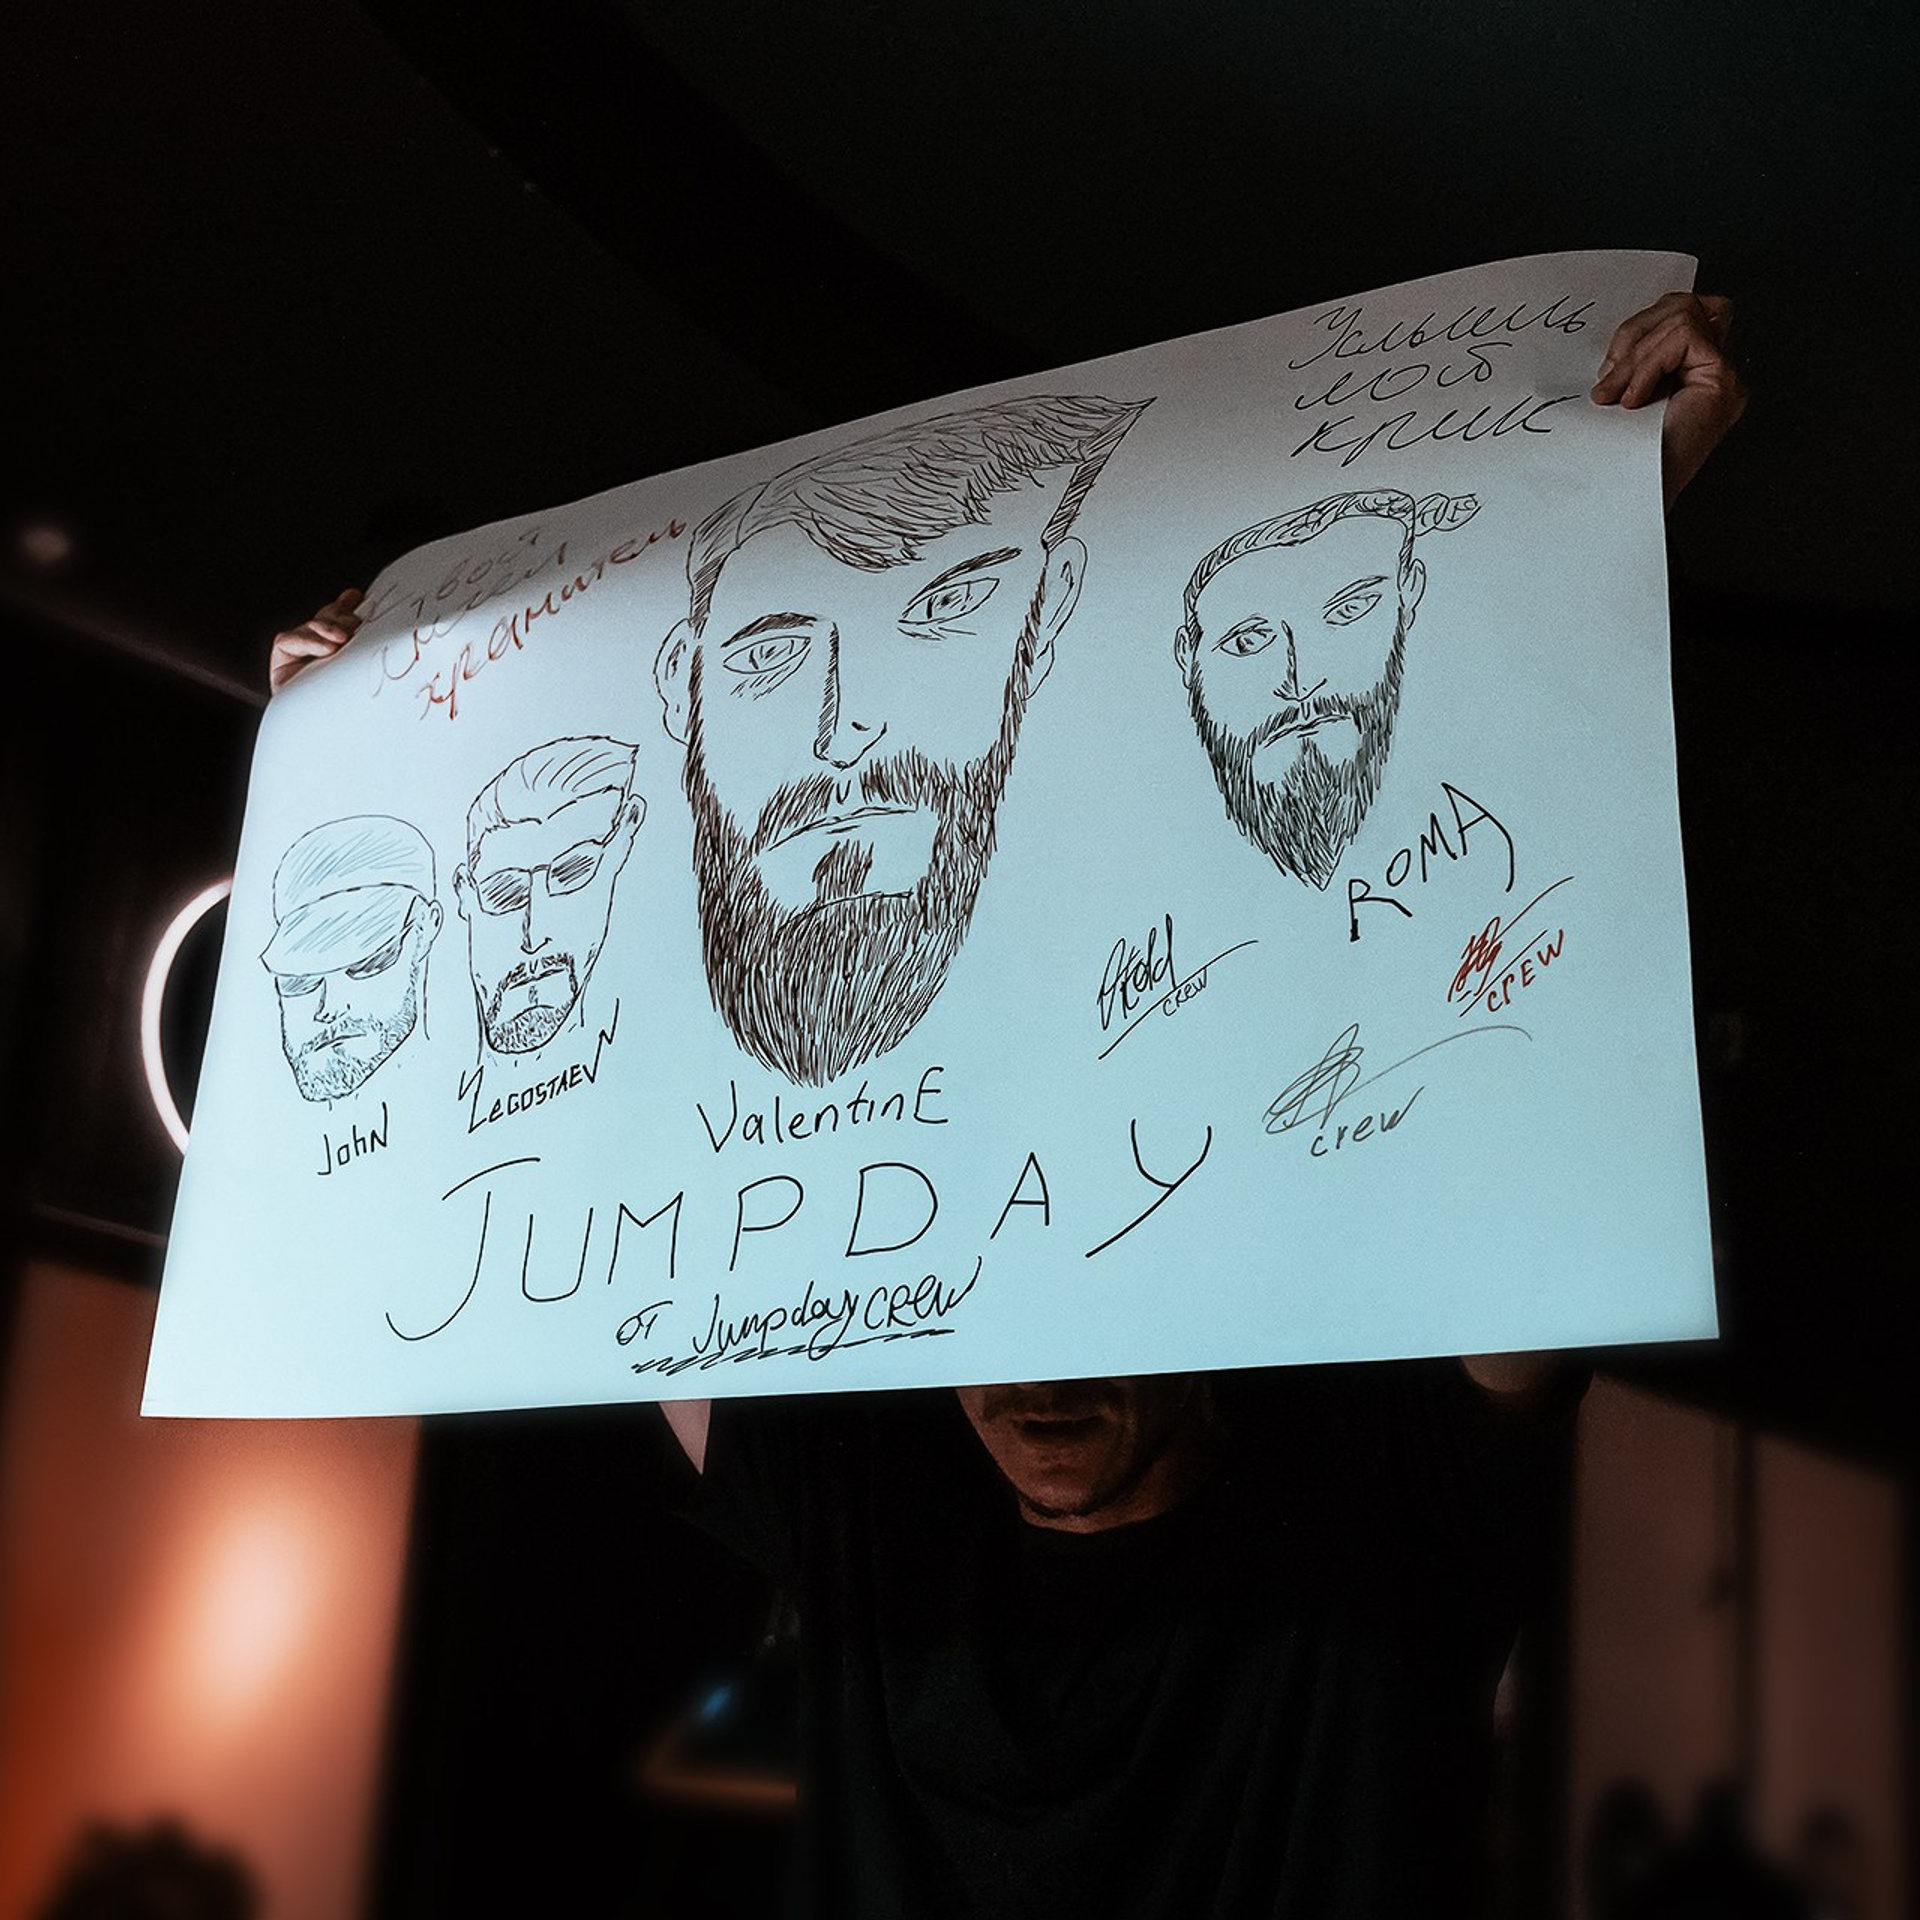 Услышь
мой
крик
Я твой
ангел
хранитель
ROMA
John
LeGOSTAEV
ValentinE
crew
CREW
crew
JUMPDAY
от Jumpday CREW